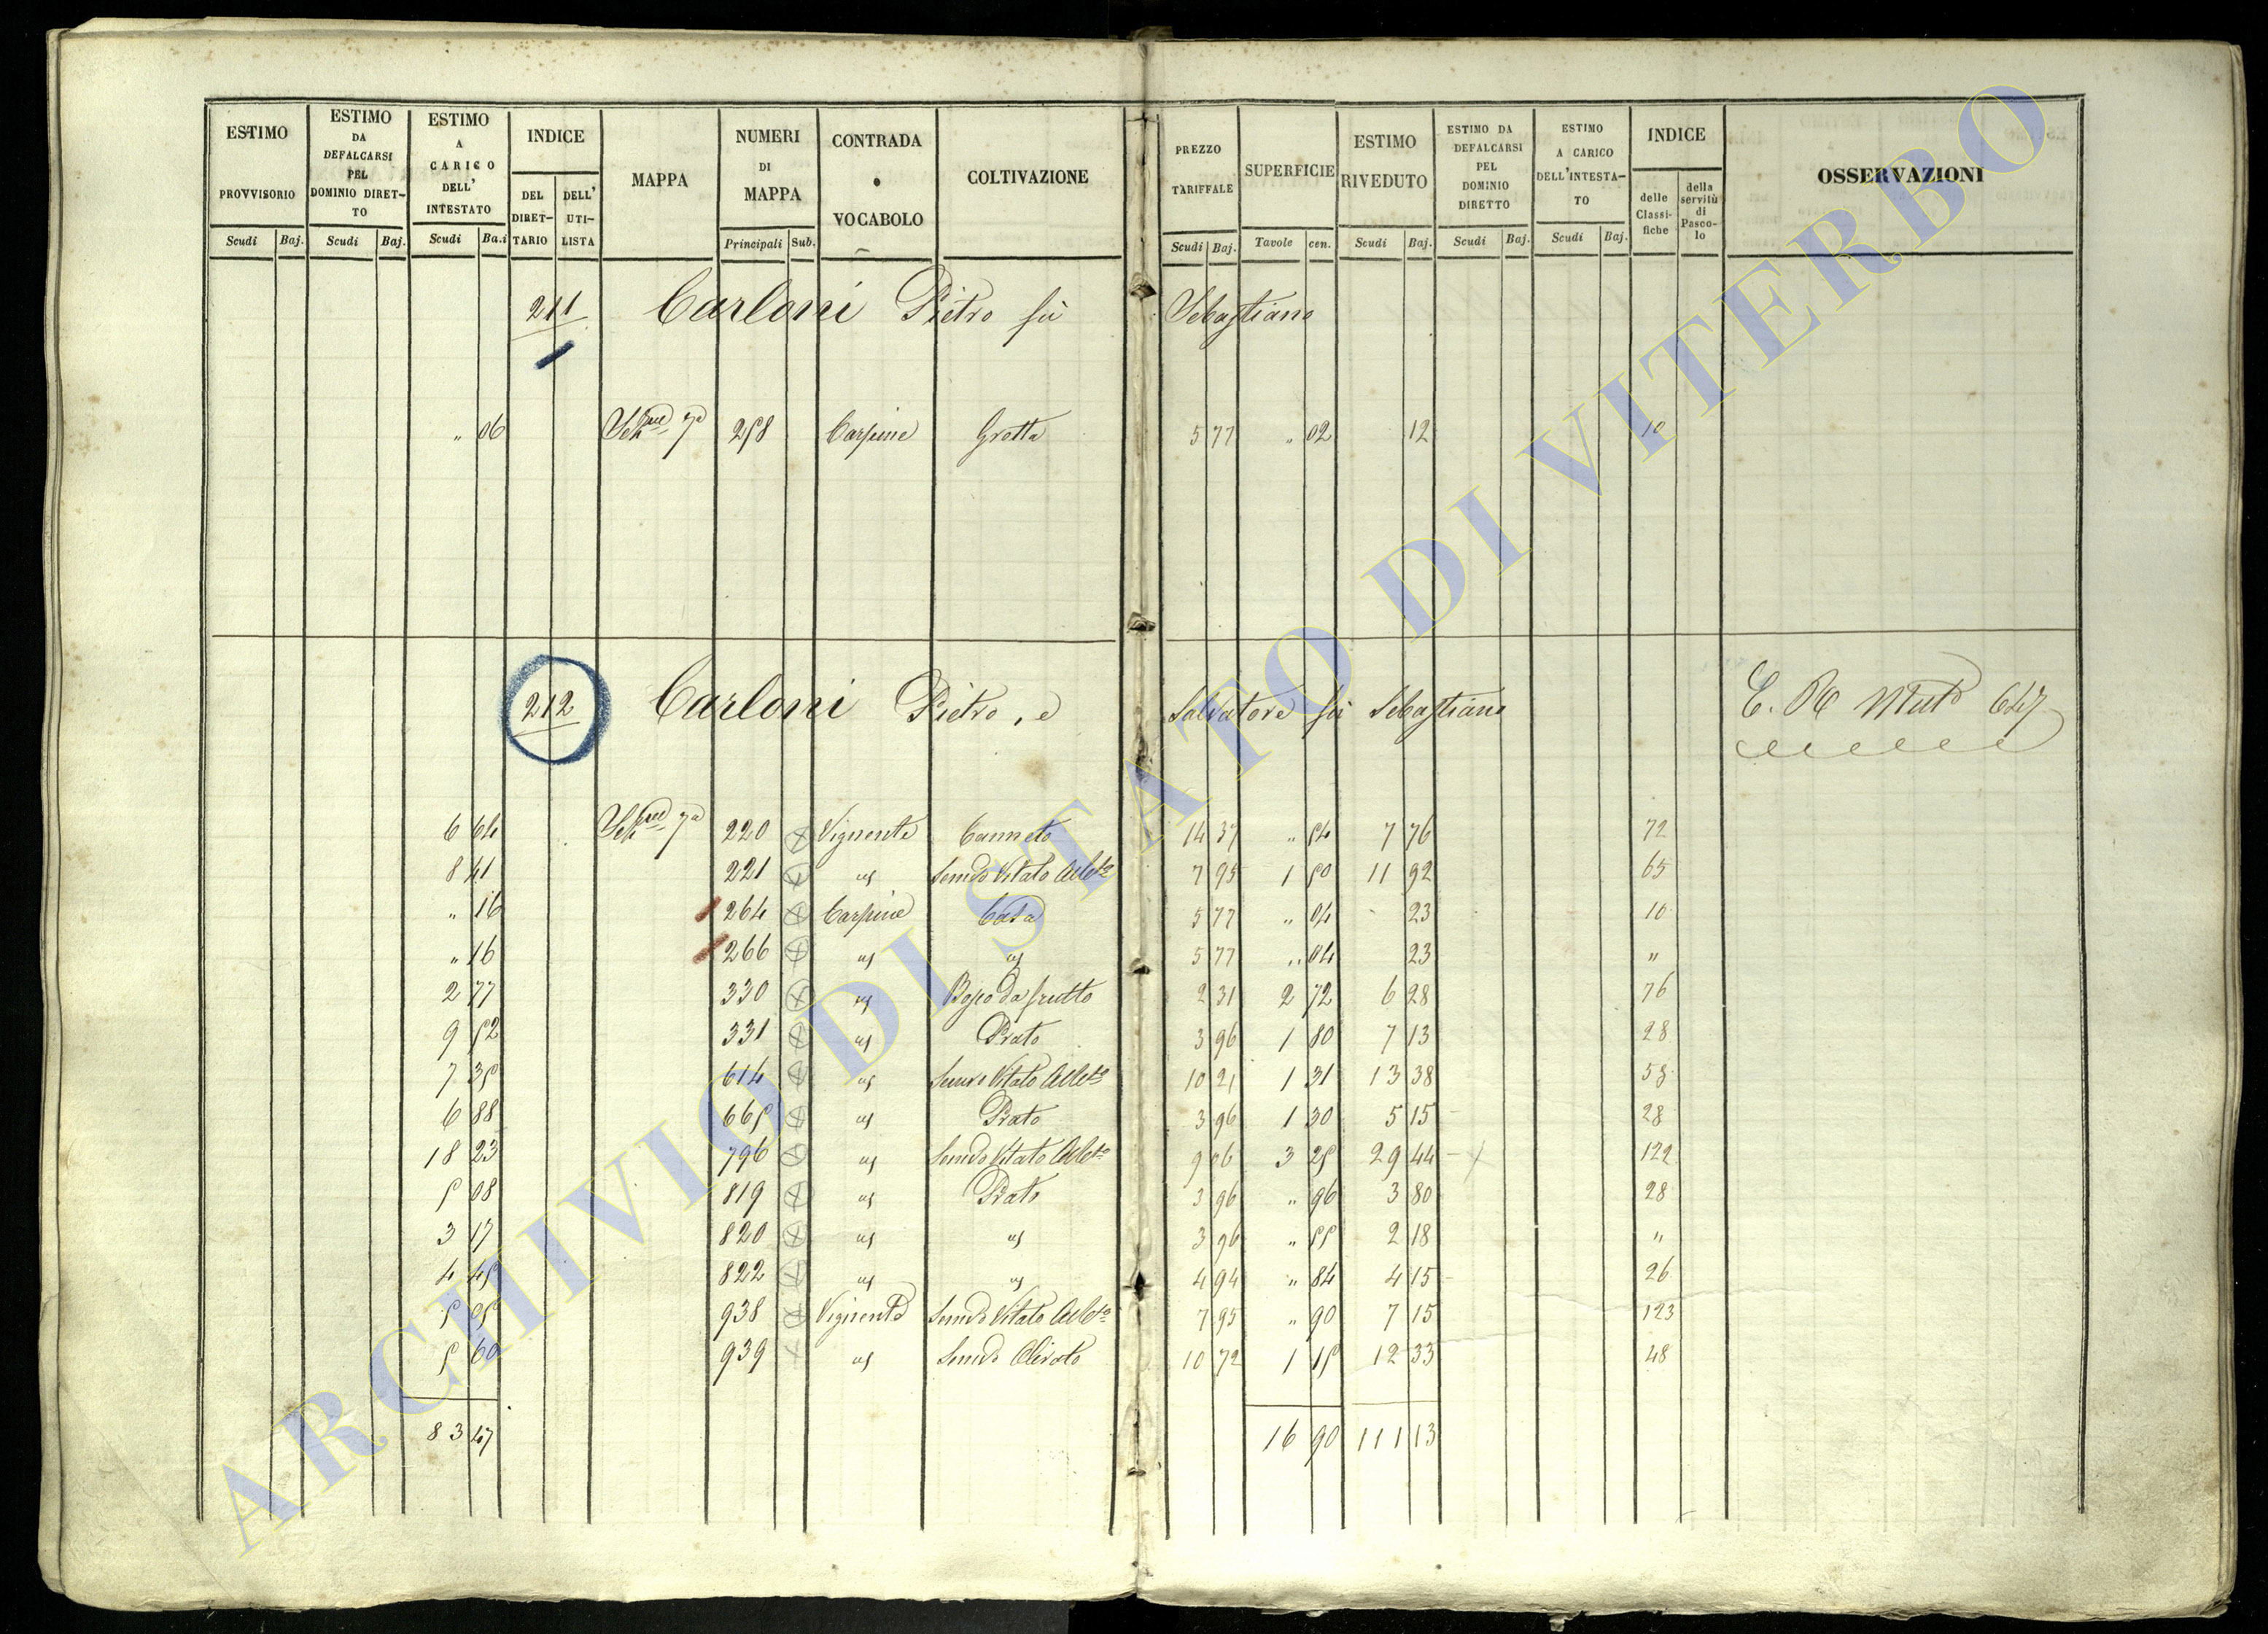 ESTIMO PROVVISORIO | ESTIMO DA DEFALCARSI PEL DOMINIO DIRET-TO | ESTIMO A CARICO DELL' INTESTATO | INDICE | MAPPA | NUMERI DI MAPPA | CONTRADA • VOCABOLO | COLTIVAZIONE | PREZZO TARIFFALE | SUPERFICIE | ESTIMO RIVEDUTO | ESTIMO DA DEFALCARSI PEL DOMINIO DIRETTO | ESTIMO A CARICO DELL'INTESTA-TO | INDICE | OSSERVAZIONI
DEL DIRET-TARIO | DELL' UTI-LISTA | delle Classi-fiche | della servitù di Pasco-lo
Scudi | Baj. | Scudi | Baj. | Scudi | Ba.i | Principali | Sub. | Scudi | Baj. | Tavole | cen. | Scudi | Baj. | Scudi | Baj. | Scudi | Baj.
211 Carloni Pietro fù Sebastiano
" 06 7a 258 Carpine Grotta 5 77 " 02 12 10
212 Carloni Pietro, e Salvatore fù Sebastiano
6 64 7a 220 Vignente Canneto 14 37 " 54 7 76 72
8 41 221 us Semvo Vitato Albto 7 95 1 50 11 92 65
" 16 264 Carpine Casa 5 77 " 04 23 10
" 16 266 us us 5 77 " 04 23 "
2 77 330 us Bosco da frutto 2 31 2 72 6 28 76
9 52 331 us Prato 3 96 1 80 7 13 28
7 35 614 us Semvo Vitato Albto 10 21 1 31 13 38 58
6 88 665 us Prato 3 96 1 30 5 15 28
18 23 796 us Semvo Vitato Albto 9 06 3 25 29 44 122
5 08 819 us Prato 3 96 " 96 3 80 28
3 17 820 us us 3 96 " 55 2 18 "
4 45 822 us us 4 94 " 84 4 15 26
5 05 938 Vignente Semvo Vitato Albto 7 95 " 90 7 15 123
5 60 939 us Semvo Olivato 10 72 1 15 12 33 48
83 47 16 90 111 13
ARCHIVIO DI STATO DI VITERBO